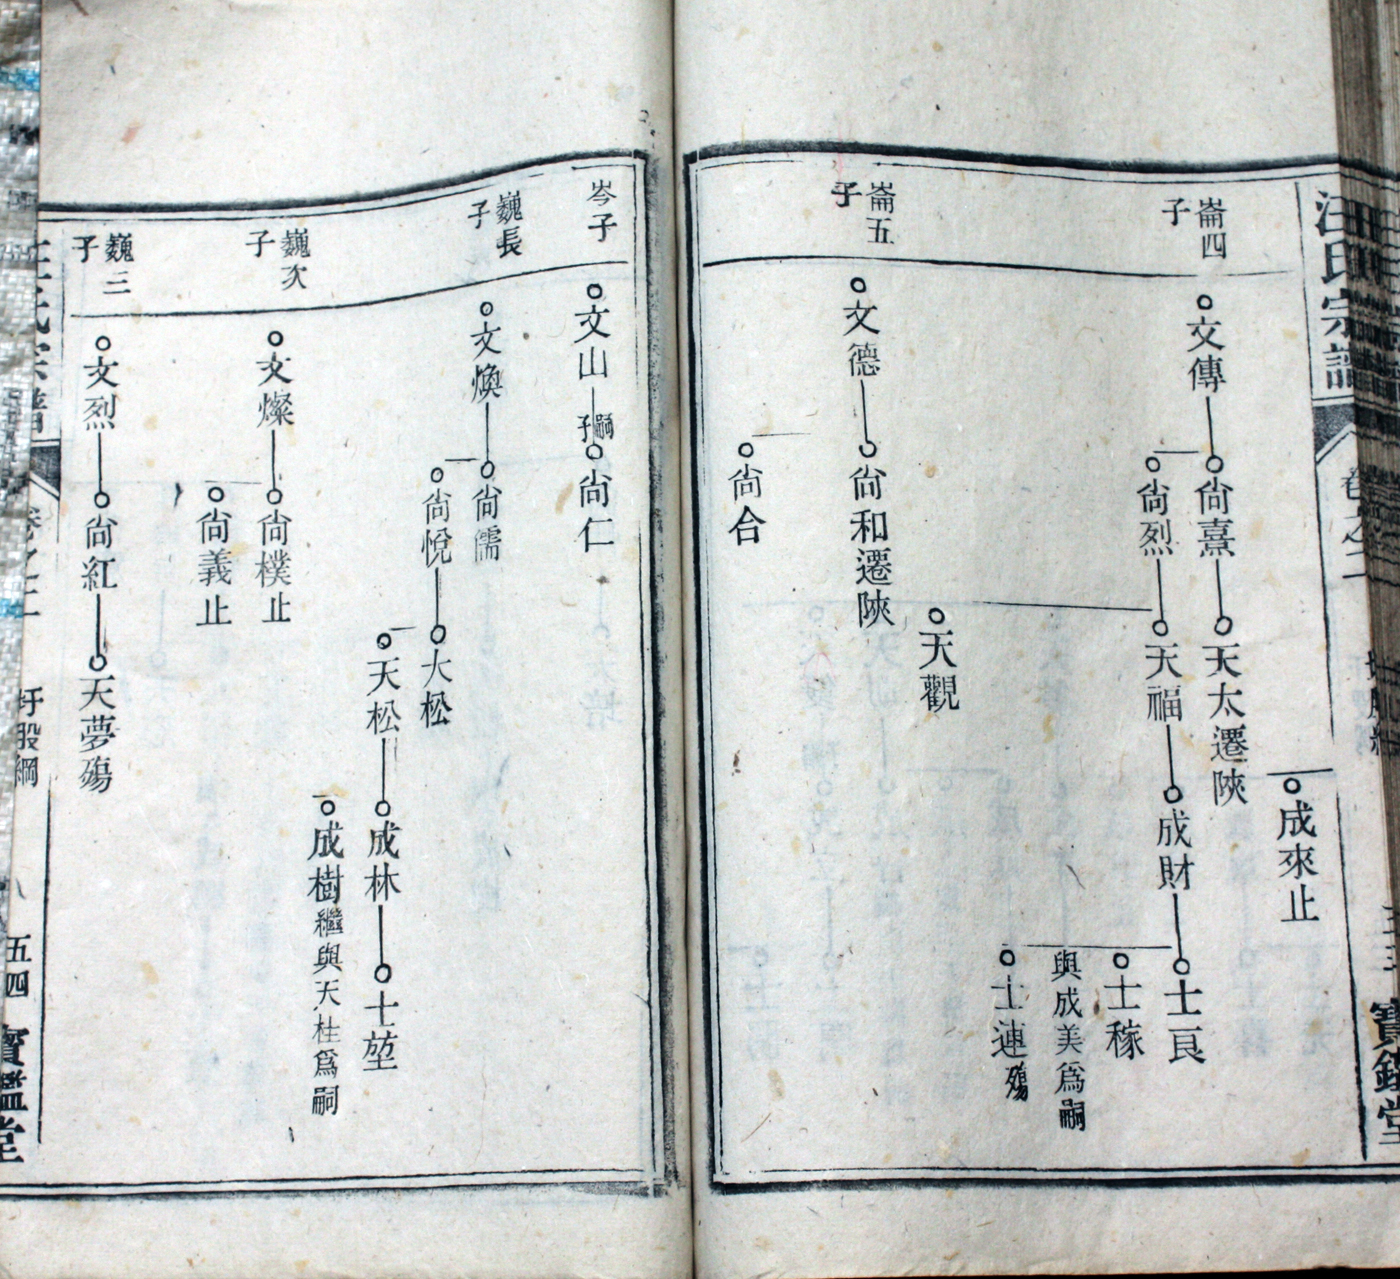 汪氏宗譜
卷之二
寶鑑堂
成來止
崙四子
文傳
尙熹
天太遷陝
尙烈
天福
成財
士良
士稼
與成美爲嗣
士連殤
天觀
崙五子
文德
尙和遷陝
尙合
岑子
文山
嗣子
尙仁
巍長子
文煥
尙儒
尙悅
大松
天松
成林
士堃
成樹繼與天桂爲嗣
巍次子
文燦
尙樸止
尙義止
巍三子
文烈
尙紅
天夢殤
圩股綱
五四
寶鑑堂